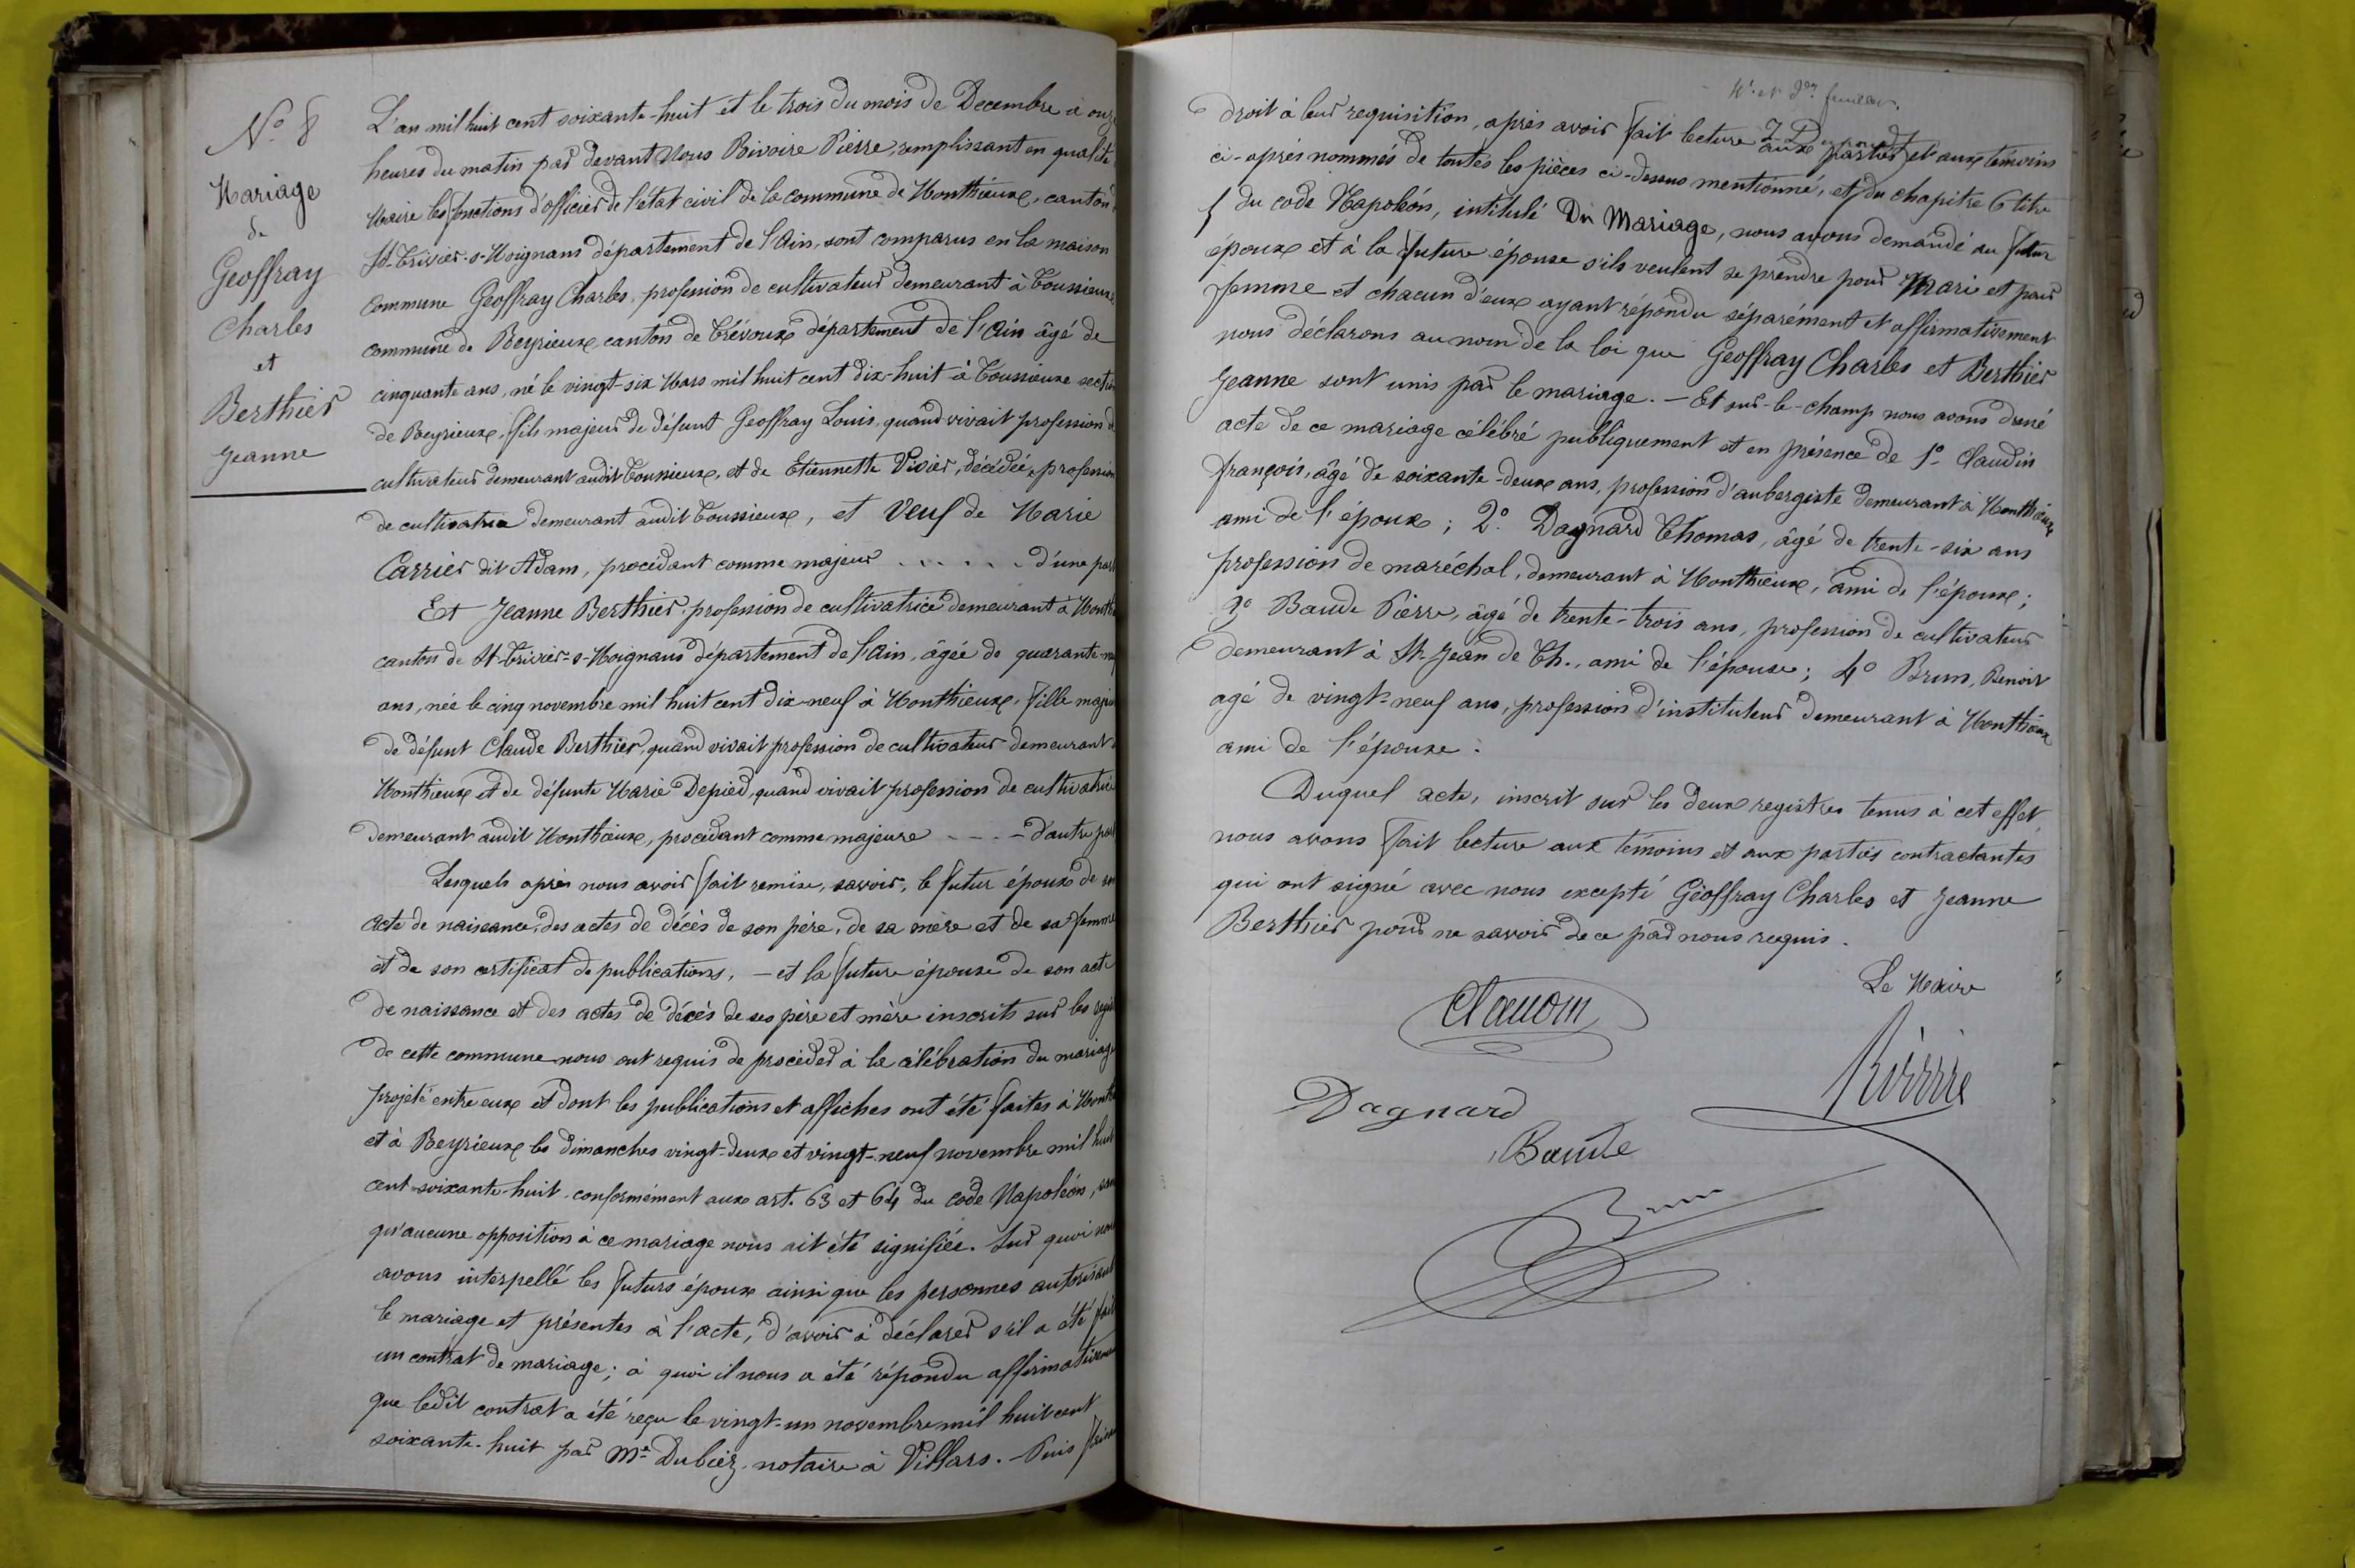 No 8
Mariage
de
Geoffray
Charles
et
Berthier
Jeanne
L'an mil huit cent soixante-huit et le trois du mois de Decembre à onze
heures du matin par devant Nous Rivoire Pierre, remplissant en qualité
Maire les fonctions d'officier de l'état civil de la commune de Monthieux, canton
St-Trivier-s-Moignans département de l'Ain, sont comparus en la maison
commune Geoffray Charles, profession de cultivateur demeurant à Toussieux
commune de Reyrieux, canton de Trévoux département de l'Ain âgé de
cinquante ans, né le vingt-six Mars mil huit cent dix-huit à Toussieux section
de Reyrieux, fils majeur de défunt Geoffray Louis, quand vivait profession d
cultivateur demeurant audit Toussieux, et de Etiennette Vivier, décédée, profession
de cultivatrice demeurant audit Toussieux, et Veuf de Marie
Carrier dit Adam, procédant comme majeur . . . . . d'une part
Et Jeanne Berthier, profession de cultivatrice demeurant à Month
canton de St-Trivier-s-Moignans département de l'Ain, âgée de quarante-n
ans, née le cinq novembre mil huit cent dix-neuf à Monthieux, fille majeu
de défunt Claude Berthier, quand vivait profession de cultivateur demeurant
Monthieux et de défunte Marie Depied, quand vivait profession de cultivatrice
demeurant audit Monthieux, procédant comme majeure - - - - d'autre part
Lesquels après nous avoir fait remise, savoir, le futur époux de son
acte de naissance, des actes de décès de son père, de sa mère et de sa femme
et de son certificat de publications, - et la future épouse de son acte
de naissance et des actes de décès de ses père et mère inscrits sur les regis
de cette commune nous ont requis de procéder à la célébration du mariage
projeté entre eux et dont les publications et affiches ont été faites à Month
et à Reyrieux les dimanches vingt-deux et vingt-neuf novembre mil huit
cent soixante-huit conformément aux art. 63 et 64 du code Napoléon, sans
qu'aucune opposition à ce mariage nous ait été signifiée. Sur quoi nous
avons interpellé les futurs époux ainsi que les personnes autorisant
le mariage et présentes à l'acte, d'avoir à déclarer s'il a été fait
un contrat de mariage ; à quoi il nous a été répondu affirmativement
que ledit contrat a été reçu le vingt-un novembre mil huit cent
soixante-huit par Me Dubiez, notaire à Villars. - Puis faisant
droit à leur requisition, après avoir fait lecture aux parties et aux témoins
ci-après nommés de toutes les pièces ci-dessus mentionné, et du chapitre 6 titre
5 du code Napoléon, intitulé Du Mariage, nous avons demandé au futur
époux et à la future épouse s'ils veulent se prendre pour Mari et pour
femme et chacun d'eux ayant répondu séparément et affirmativement
nous déclarons au nom de la loi que Geoffray Charles et Berthier
Jeanne sont unis par le mariage. - Et sur-le-champ nous avons dressé
acte de ce mariage célébré publiquement et en présence de 1º Claudin
françois, âgé de soixante-deux ans, profession d'aubergiste demeurant à Monthieux
ami de l'époux ; 2º. Dagnard Thomas, âgé de trente-six ans
profession de maréchal, demeurant à Monthieux, ami de l'époux ;
3º Baude Pierre, âgé de trente-trois ans, profession de cultivateur
demeurant à St-Jean de Th., ami de l'épouse ; 4º Brun, Benoit
agé de vingt-neuf ans, profession d'instituteur demeurant à Monthieux
ami de l'épouse.
Duquel acte, inscrit sur les deux registres tenus à cet effet,
nous avons fait lecture aux témoins et aux parties contractantes
qui ont signé avec nous excepté Geoffray Charles et Jeanne
Berthier pour ne savoir de ce par nous requis.
Le Maire
Dagnard
Baude
Brun